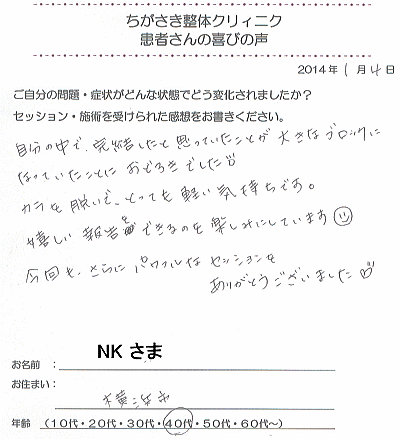 ちがさき整体クリィニク
患者さんの喜びの声
2014年 1月 4日
ご自分の問題・症状がどんな状態でどう変化されましたか？
セッション・施術を受けられた感想をお書きください。
自分の中で、完結したと思っていたことが大きなブロックに
なっていたことにおどろきでした
カラを脱いで、とっても軽い気持ちです。
嬉しい報告をできるのを楽しみにしています
今回も、さらにパワフルなセッションを
ありがとうございました
お名前： NK さま
お住まい： 横浜市
年齢 （10代・20代・30代・40代・50代・60代～）